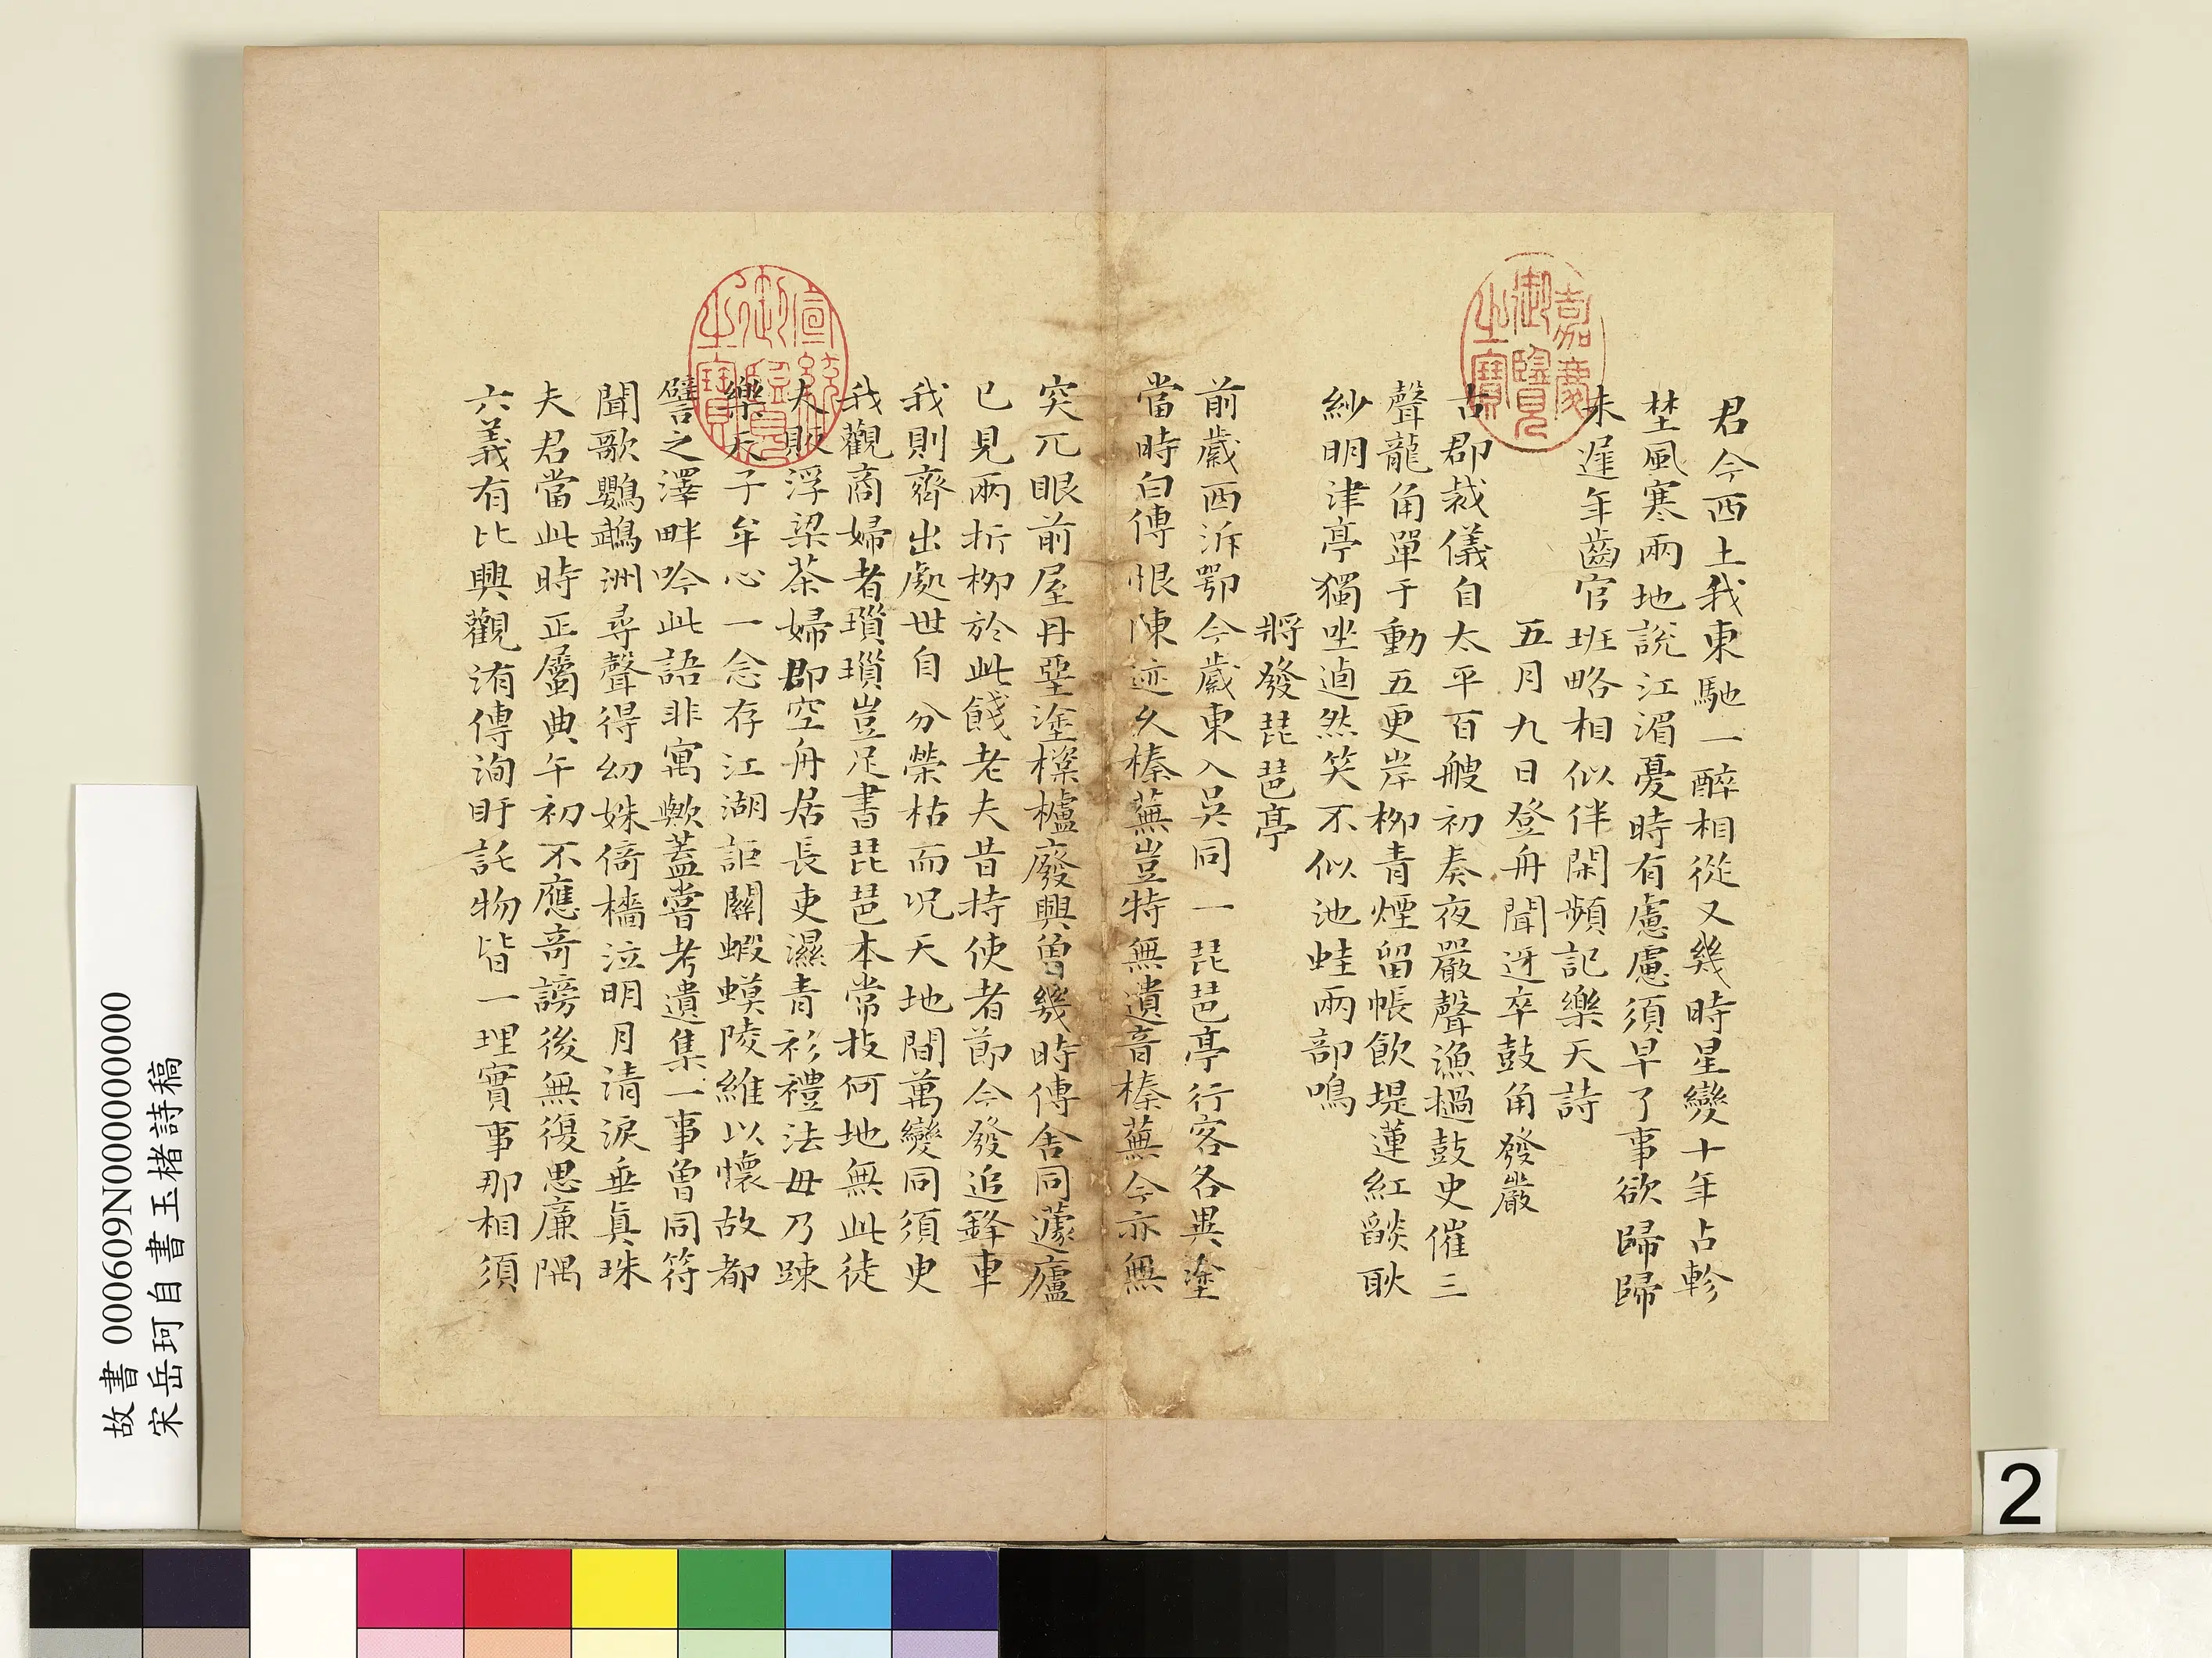 君今西上我東馳一醉相從又幾時星變十年占軫
埜風寒兩地說江湄憂時有慮慮須早了事欲歸歸
未遲年齒官班略相似伴閑頻記樂天詩
五月九日登舟聞迓卒鼓角發嚴
古郡裁儀自太平百艘初奏夜嚴聲漁撾鼓史催三
聲龍角單于動五更岸柳青煙留帳飲堤蓮紅燄耿
紗明津亭獨坐逌然笑不似池蛙兩部鳴
將發琵琶亭
前歲西泝鄂今歲東入吳同一琵琶亭行客各異塗
當時白傅恨陳迹久榛蕪豈特無遺音榛蕪今亦無
突兀眼前屋丹堊塗樑櫨廢興曾幾時傳舍同蘧廬
已見兩折柳於此餞老夫昔持使者節今發追鋒車
我則齊出處世自分榮枯而况天地間萬變同須臾
我觀商婦者瑣瑣豈足書琵琶本常技何地無此徒
夫販浮梁茶婦郡空舟居長吏濕青衫禮法毋乃踈
樂天子牟心一念存江湖詎關蝦蟆陵維以懷故都
譬之澤畔吟此語非寓歟蓋嘗考遺集一事曾同符
聞歌鸚鵡洲尋聲得幼姝倚檣泣明月清淚垂真珠
夫君當此時正屬典午初不應奇謗後無復思廉隅
六義有比興觀洧傳洵盱託物皆一理實事那相須
嘉慶御覽之寶
宣統御覽之寶
故書 000609N000000000
宋岳珂自書玉楮詩稿
2